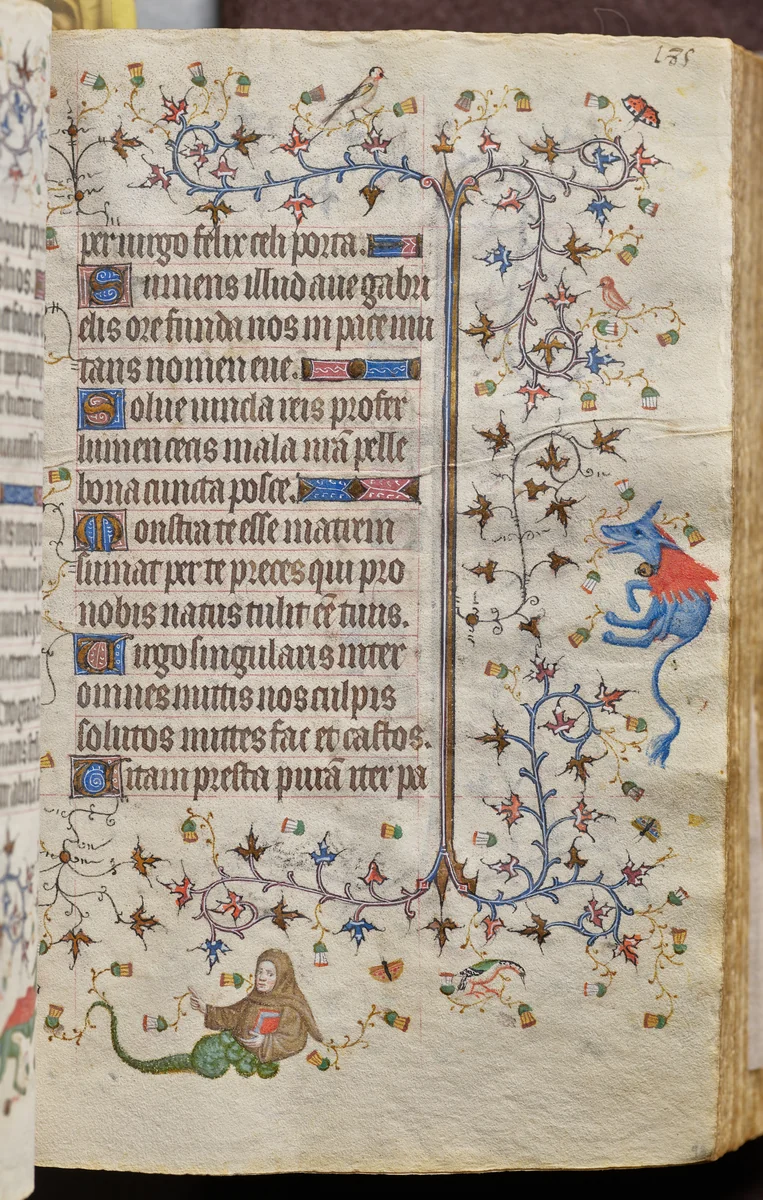 135
per uirgo felix celi porta.
Sumens illud aue gabri
elis ore funda nos in pace mu
tans nomen eue.
Solue uincla reis profer
lumen cecis mala nrā pelle
bona cuncta posce.
Monstra te esse matrem
sumat per te preces qui pro
nobis natus tulit eē tuus.
Uirgo singularis inter
omnes mittis nos culpis
solutos mittes fac et castos.
Uitam presta purā iter pa